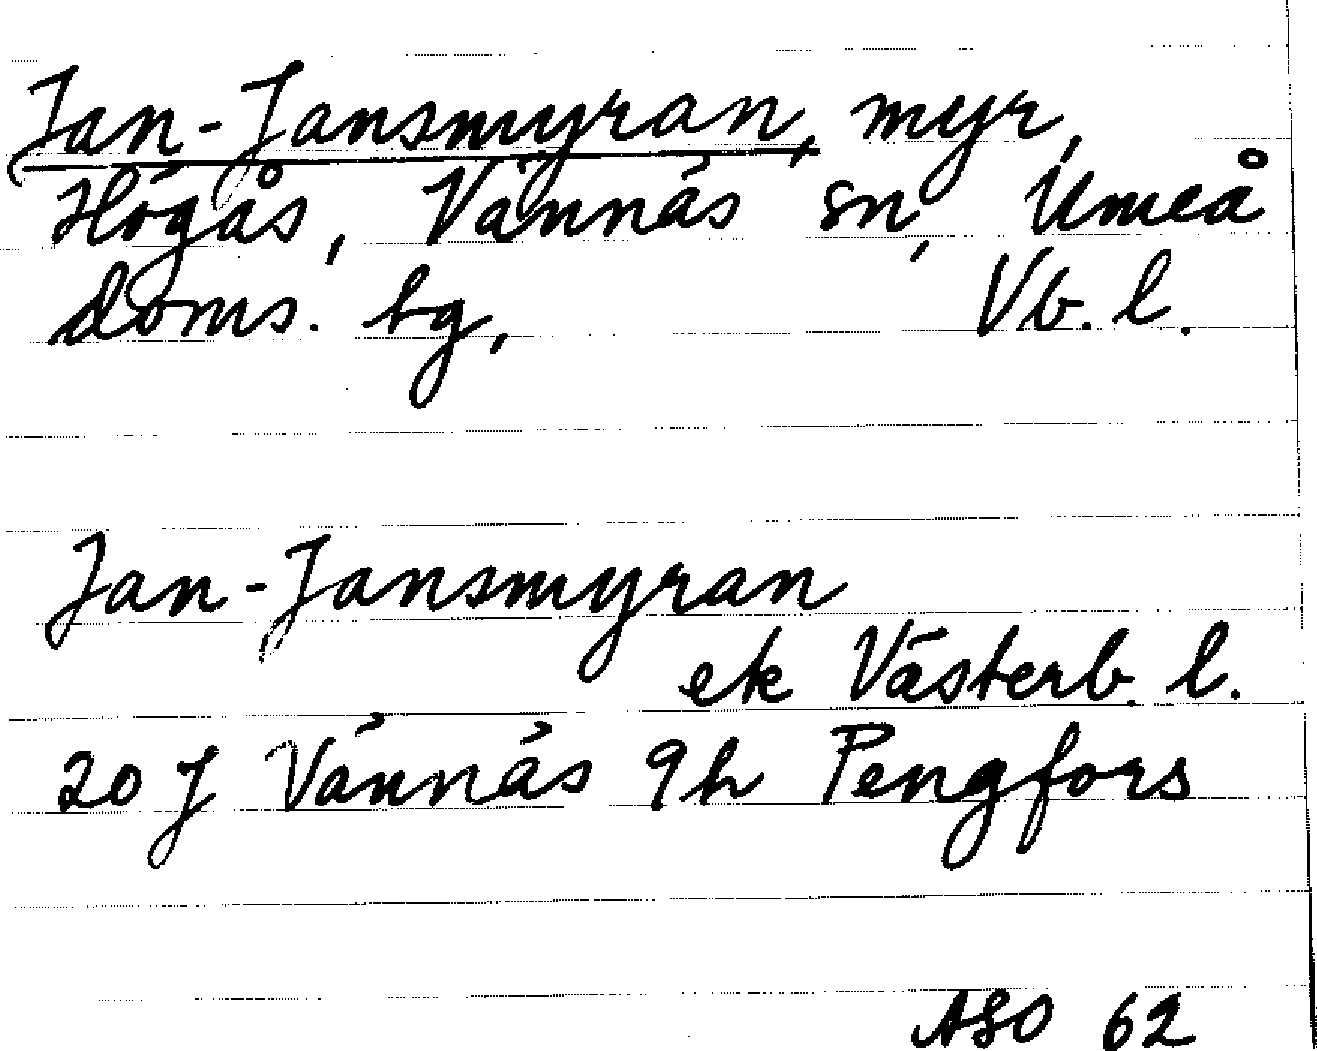 Jan-Jansmyran, myr,
Högås, Vännäs sn, Umeå
doms. tg, Vb. l.
Jan-Jansmyran
ek Västerb. l.
20 J Vännäs 9h Pengfors
ASO 62